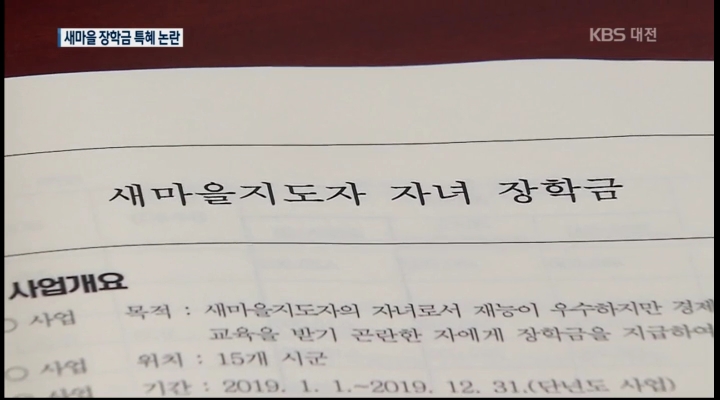 새마을 장학금 특혜 논란
KBS 대전
새마을지도자 자녀 장학금
사업개요
○ 사업 목적 : 새마을지도자의 자녀로서 재능이 우수하지만 경제
교육을 받기 곤란한 자에게 장학금을 지급하여
○ 사업 위치 : 15개 시군
○ 사업 기간 : 2019. 1. 1.~2019. 12. 31.(단년도 사업)